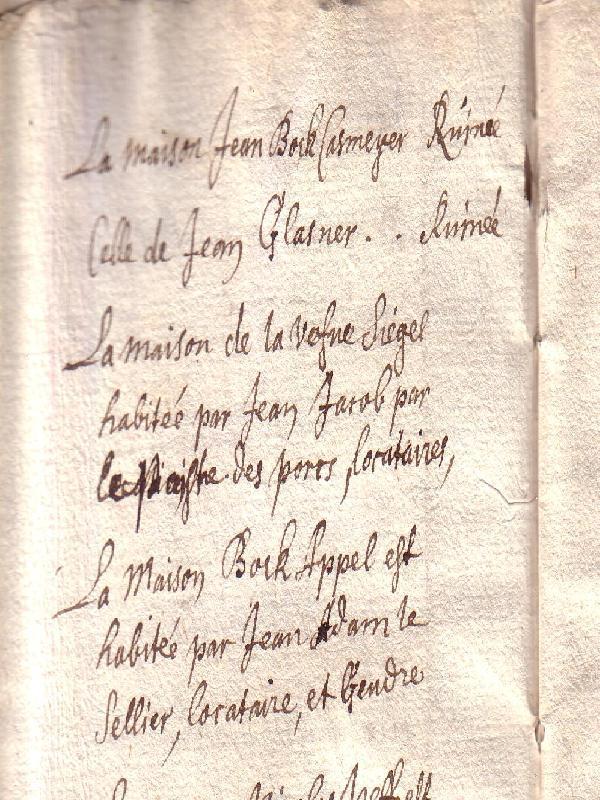 La maison Jean Bock Casmeyer Ruinée
Celle de Jean Glasner . . Ruinée
La maison de la vefve Siegel
habitée par Jean Jacob par
le des porcs, locataires,
La Maison Bock Appel est
habitée par Jean Adam le
Sellier, locataire, et Gendre